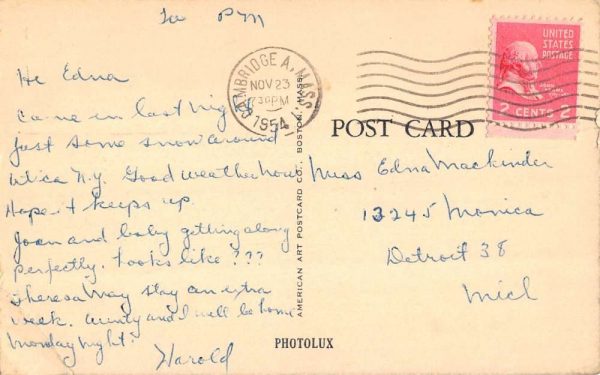 Tue PM
UNITED
STATES
POSTAGE
JOHN ADAMS
2 CENTS 2
CAMBRIDGE A, MASS.
NOV 23
730PM
1954
POST CARD
Hi Edna
Came in last night
just some snow around
Utica N.Y. Good weather now
Hope it keeps up
Joan and baby getting along
perfectly. Looks like ???
Theresa may stay an extra
week. Aunty and I will be home
Monday night.
Harold
AMERICAN ART POSTCARD CO., BOSTON, MASS.
Miss Edna Mackinder
13245 Monica
Detroit 38
Mich
PHOTOLUX